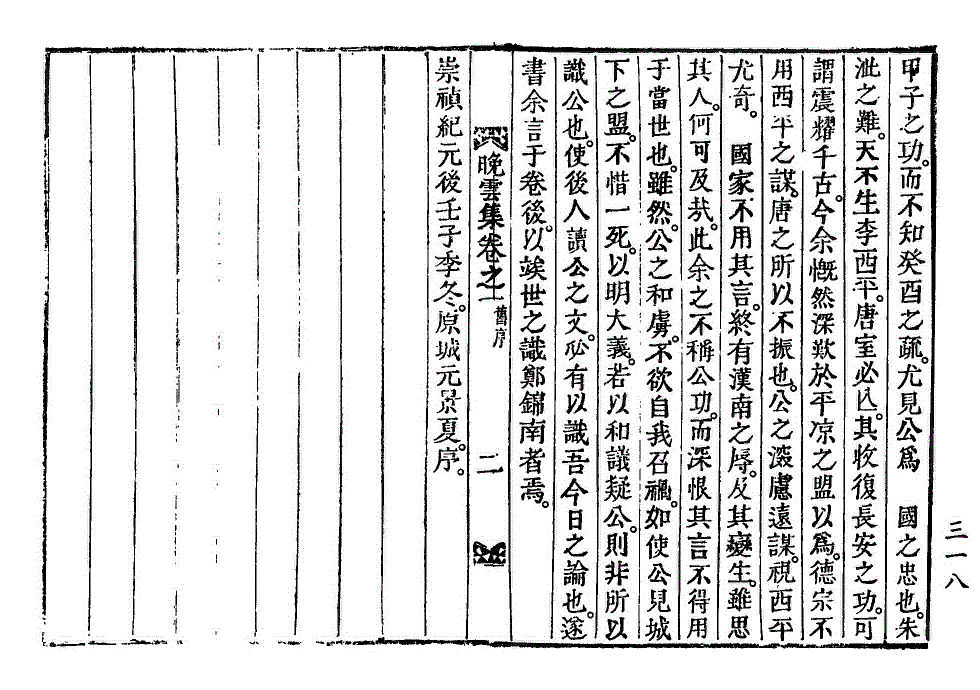 甲子之功。而不知癸酉之疏。尤見公爲　國之忠也。朱
泚之難。天不生李西平。唐室必亡。其收復長安之功。可
謂震耀千古。今余慨然深歎於平凉之盟以爲。德宗不
用西平之謀。唐之所以不振也。公之深慮遠謀。視西平
尤奇。　國家不用其言。終有漢南之辱。及其變生。雖思
其人。何可及㢤。此余之不稱公功。而深恨其言不得用
于當世也。雖然。公之和虜。不欲自我召禍。如使公見城
下之盟。不惜一死。以明大義。若以和議疑公。則非所以
識公也。使後人讀公之文。必有以識吾今日之論也。遂
書余言于卷後。以竢世之識鄭錦南者焉。
晚雲集卷之一 舊序 二
崇禎紀元後壬子季冬。原城元景夏。序。
三一八